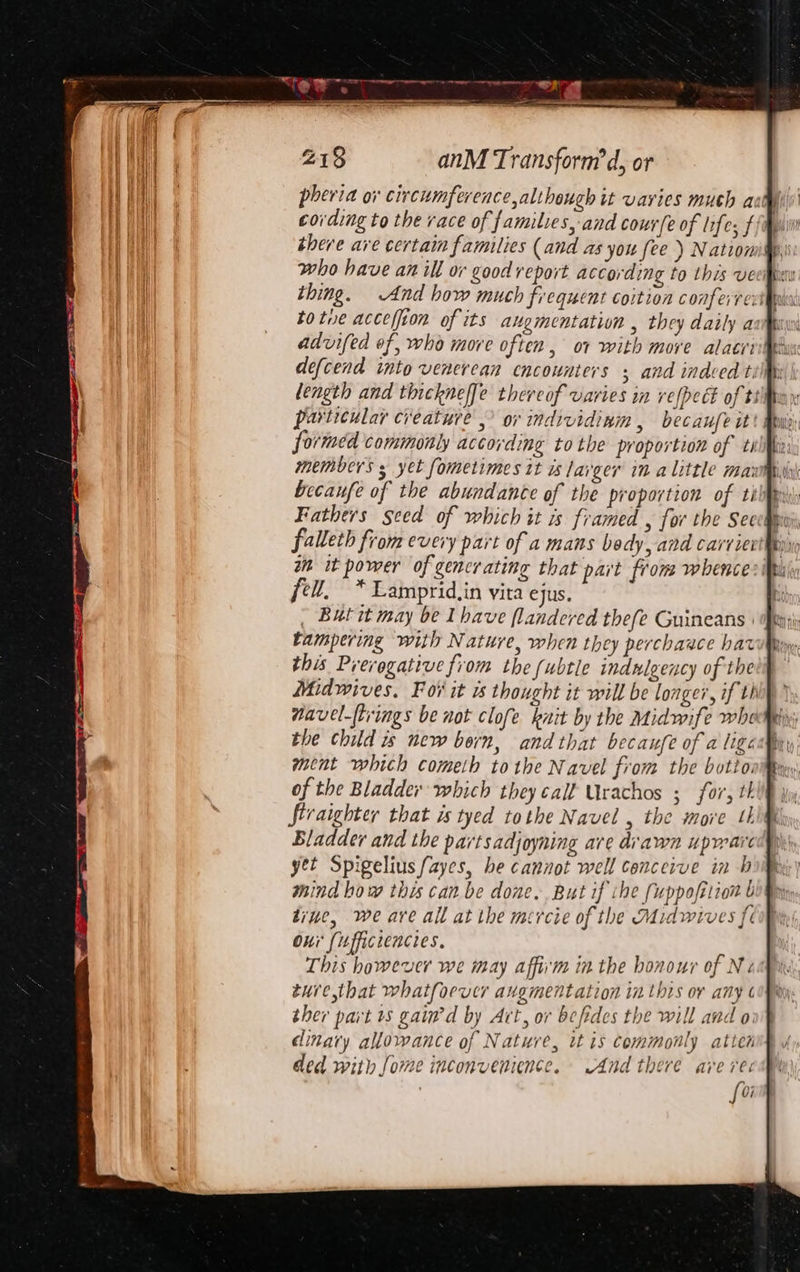 218 anM Transform'd, or
pheria or circumference, although it varies much
cording to the race of families, and courſe of life;
there are certain families (and as you ſee) Nations
who have an ill or good report according to this
thing. And how much frequent coition conferres
to the acceſſion of its augmentation, they daily
adviſed of, who more often, or with more
deſcend into venerean encounters; and indeed
length and thickneſſe thereof varies in reſpect of
particular creature, or individium, becauſe it
formed commonly according to the proportion of
members; yet ſometimes it is larger in a little
becauſe of the abundance of the proportion of
Fathers seed of which it is framed, for the
falleth from every part of a mans body, and
in it power of generating that part from whence
fell. * Lamprid, in vita ejus.
But it may be I have ſlandered theſe Guineans
tampering with Nature, when they perchance
this Prerogative from the ſubtle indulgency of
Midwives. For it is thought it will be longer, if
navel-ſtrings be not cloſe knit by the Midwife
the child is new born, and that becauſe of a
ment which cometh to the Navel from the
of the Bladder which they call Urachos; for,
ſtraighter that is tyed to the Navel, the more
Bladder and the parts adjoyning are drawn
yet Spigelius ſayes, he cannot well conceive in
mind how this can be done. But if the ſuppoſition
true, we are all at the mercie of the Midwives
our ſufficiencies.
This however we may affirm in the honour of
ture, that whatſoever augmentation in this or any
ther part is gain'd by Art, or beſides the will and
dinary allowance of Nature, it is commonly
ded with ſome inconvenience. And there are